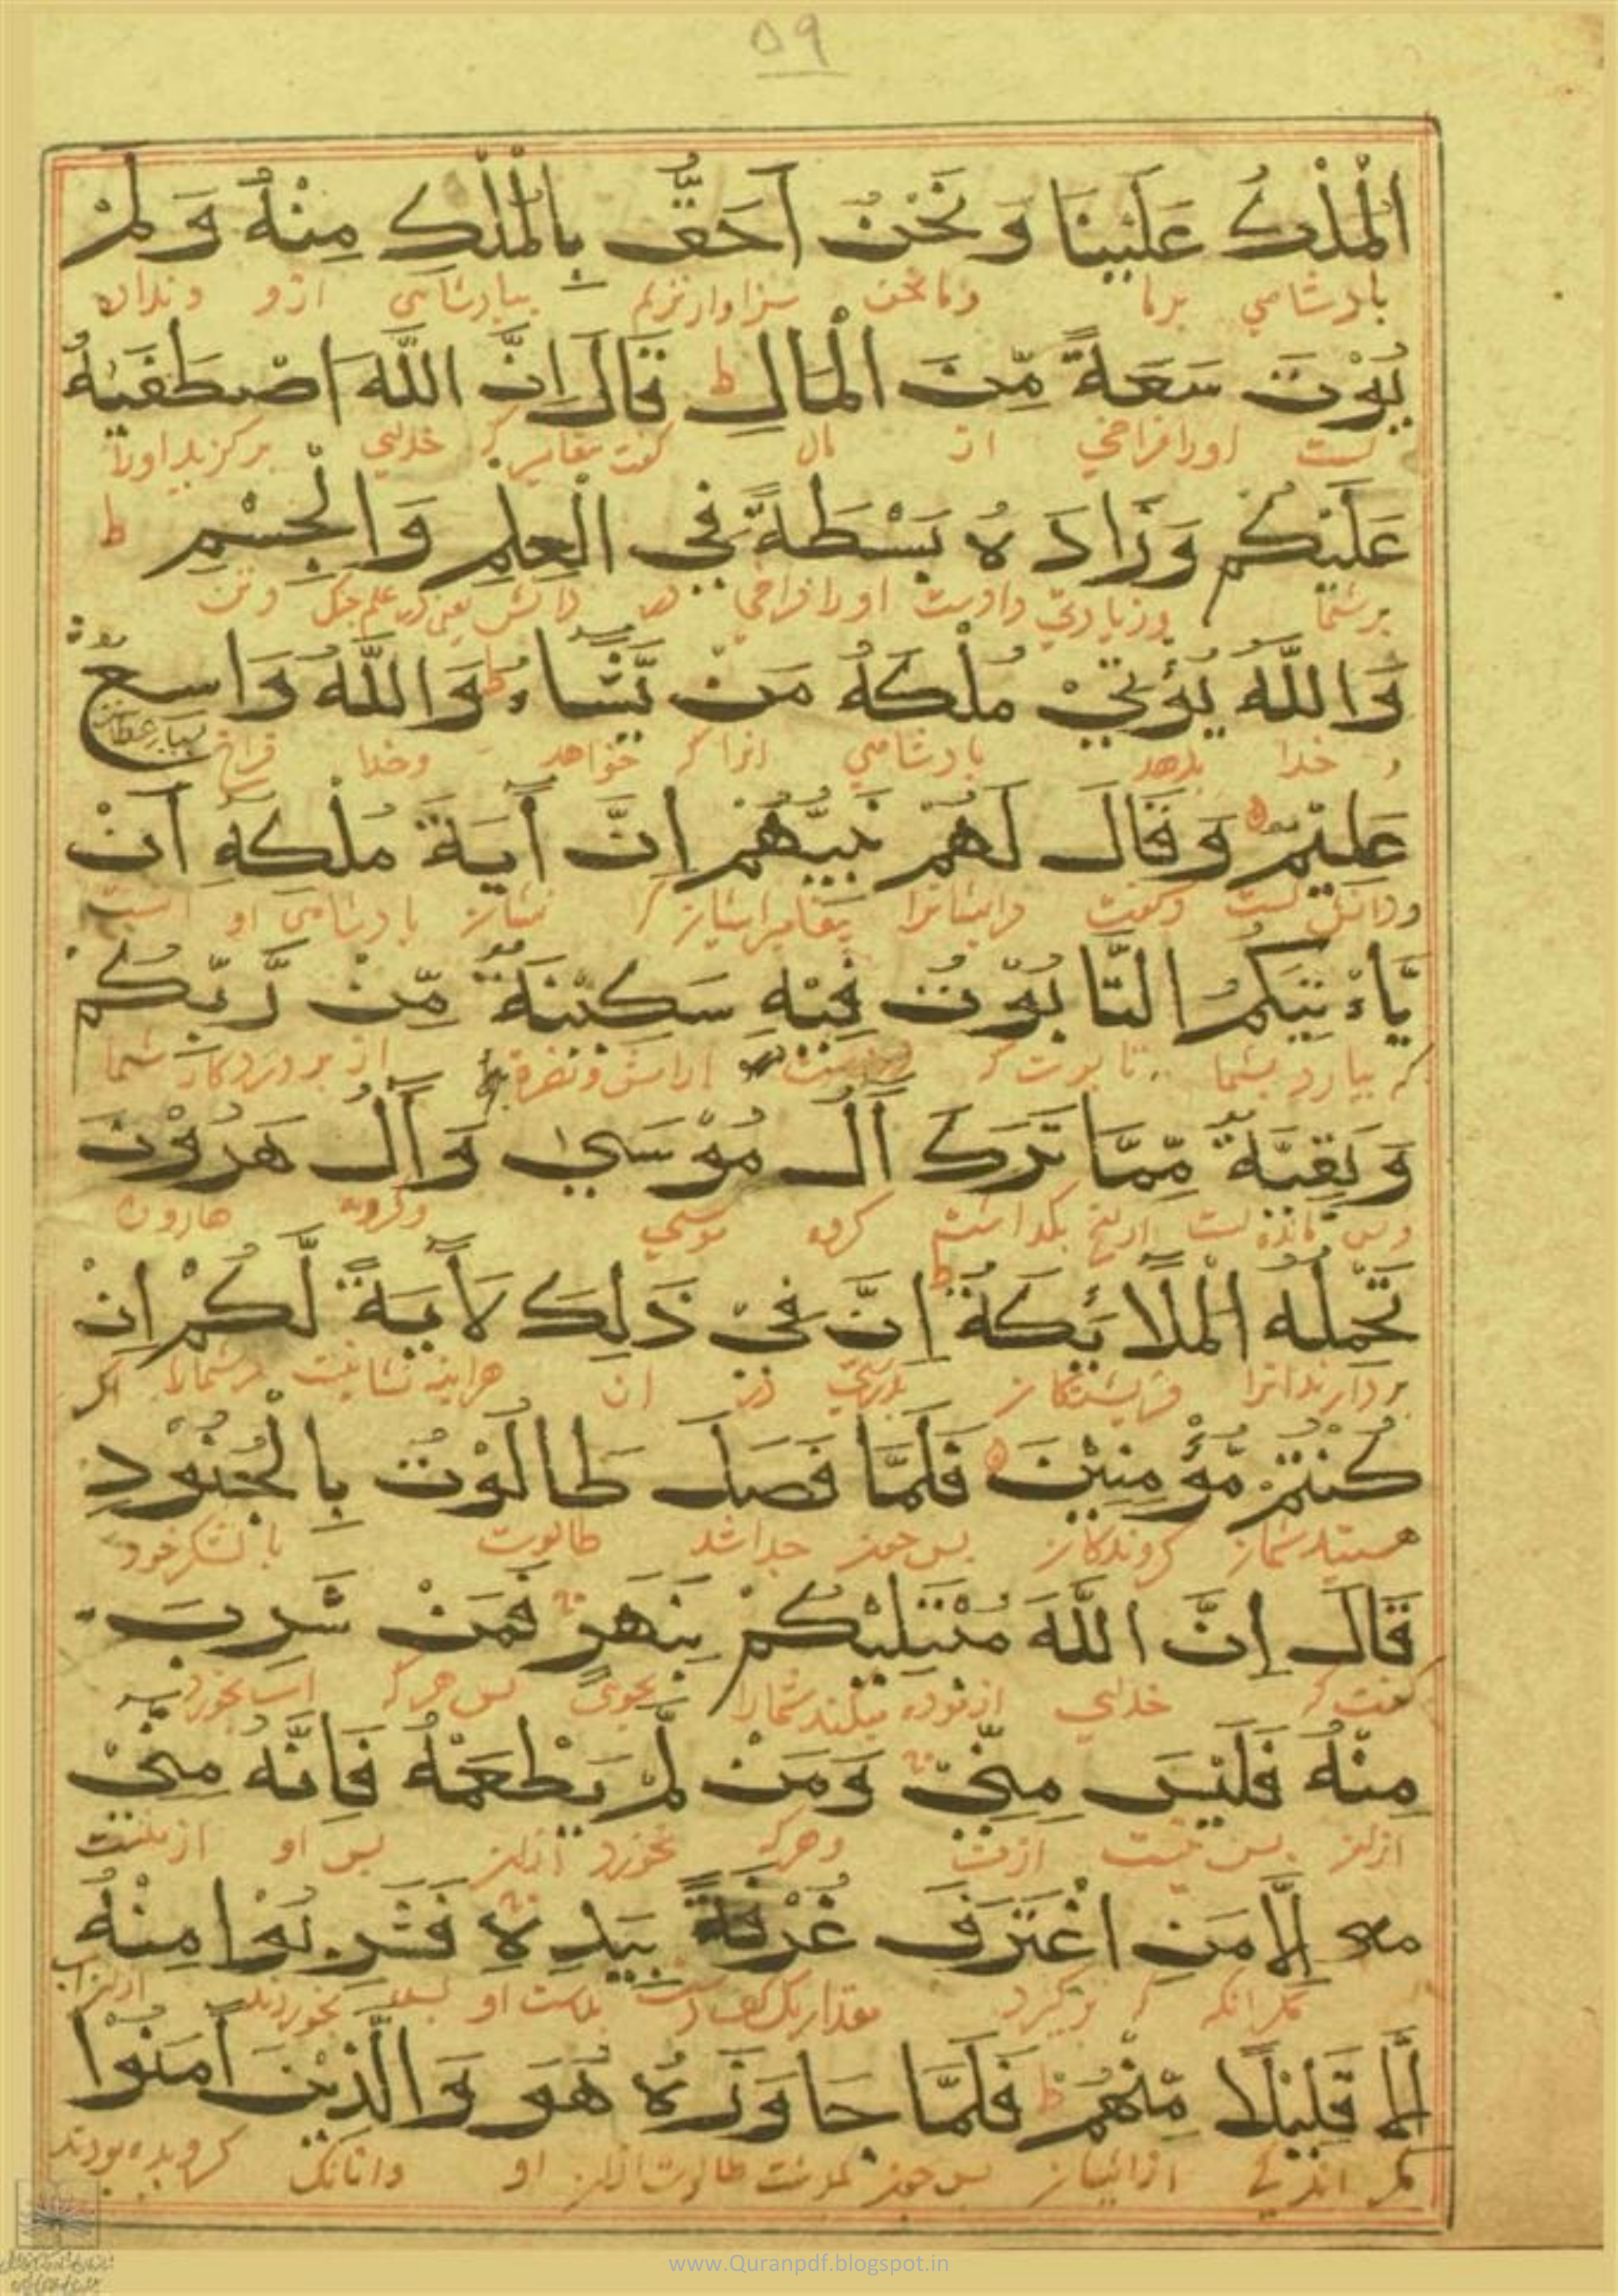 ۵۹
الْمُلْكُ عَلَيْنَا وَنَحْنُ اَحَقُّ بِالْمُلْكِ مِنْهُ وَلَمْ
بادشاهي برما وما نحن سزاوارتريم ببادشاهي ازو وندادن
يُؤْتَ سَعَةً مِّنَ الْمَالِ ط قَالَ اِنَّ اللَّهَ اصْطَفَيٰهُ
است اورا فراخي از مال كفت پيغامبر كه خداي بركزيد اورا
عَلَيْكُمْ وَزَادَهُ بَسْطَةً فِي الْعِلْمِ وَالْجِسْمِ ط
برشما وزيادتي دادست اورا فراخي در دانش يعني در علم جنك وتن
وَاللَّهُ يُؤْتِيْ مُلْكَهُ مَنْ يَّشَاءُ ط وَاللَّهُ وَاسِعٌ
و خدا بدهد بادشاهي انرا كه خواهد وخدا فراخ
عَلِيْمٌ وَقَالَ لَهُمْ نَبِيُّهُمْ اِنَّ آيَةَ مُلْكِهِ اَنْ
ودانا است وكفت مرايشانرا پيغامبر ايشان كه نشان بادشاهي او انست
يَّاْتِيَكُمُ التَّابُوْتُ فِيْهِ سَكِيْنَةٌ مِّنْ رَّبِّكُمْ
كه بيارد بشما تابوت كه ارامش از پروردكار شما
وَبَقِيَّةٌ مِّمَّا تَرَكَ آلُ مُوْسَىٰ وَآلُ هَرُوْنَ
مانده است ازانچ بكذاشت كروه موسي وكروه هارون
تَحْمِلُهُ الْمَلَائِكَةُ ط اِنَّ فِيْ ذَلِكَ لَآيَةً لَّكُمْ اِنْ
بردارند انرا فريشتكان بدرستي در ان هراينه نشانيست مرشمارا اكر
كُنْتُمْ مُّؤْمِنِيْنَ فَلَمَّا فَصَلَ طَالُوْتُ بِالْجُنُوْدِ
هستيد شما كروندكان پس چون جدا شد طالوت با لشكر خود
قَالَ اِنَّ اللَّهَ مُبْتَلِيْكُمْ بِنَهَرٍ فَمَنْ شَرِبَ
كفت كه خداي ازموده ميكند شمارا بجوي پس هركه اب بخورد
مِنْهُ فَلَيْسَ مِنِّيْ وَمَنْ لَّمْ يَطْعَمْهُ فَاِنَّهُ مِنِّيْ
ازان پس نيست ازمن وهركه نخورد ازان پس او از منست
اِلَّا مَنِ اغْتَرَفَ غُرْفَةً بِيَدِهِ فَشَرِبُوْا مِنْهُ
مكر انكه بركيرد مقدار يك كف دست بدست او بخوردند ازان اب
اِلَّا قَلِيْلًا مِّنْهُمْ ط فَلَمَّا جَاوَزَهُ هُوَ وَالَّذِيْنَ آمَنُوْا
مكر اندكي ازايشان پس چون كذشت طالوت ازان او وانانك كرويده بودند
www.Quranpdf.blogspot.in